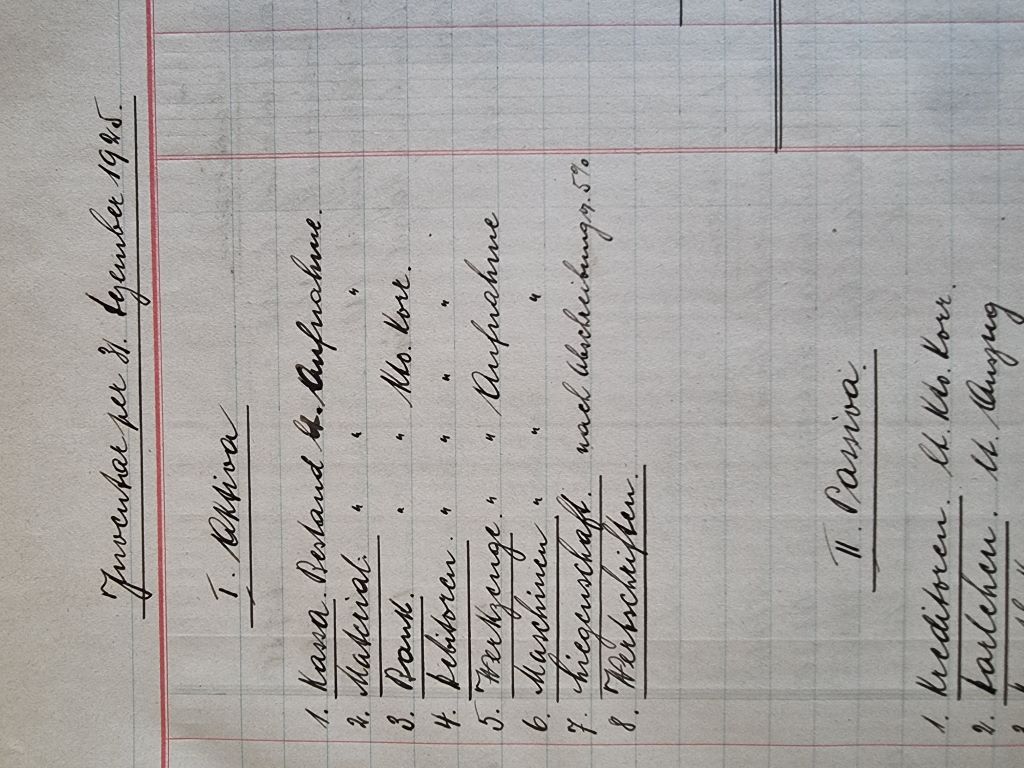 Inventar per 31. Dezember 1925.
I. Aktiva
1. Kassa. Bestand lt. Aufnahme.
2. Material. " " "
3. Bank. " " Kto. Korr.
4. Debitoren. " " " "
5. Werkzeuge. " " Aufnahme
6. Maschinen " " "
7. Liegenschaft. nach Abschreibung v. 5%
8. Wertschriften.
II. Passiva.
1. Kreditoren. lt. Kto. Korr.
2. Darlehen. lt. Auszug
3.